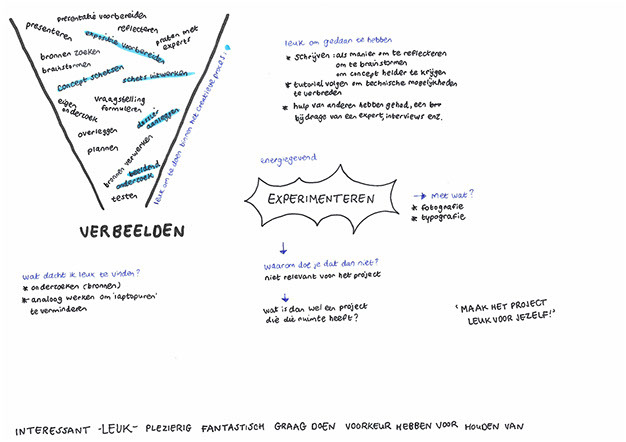 presentatie voorbereiden
presenteren
reflecteren
expositie voorbereiden
praten met
experts
bronnen zoeken
brainstormen
concept schetsen
schets uitwerken
eigen
onderzoek
vraagstelling
formuleren
dossier
aanleggen
overleggen
plannen
bronnen verwerken
beeldend
onderzoek
testen
leuk om te doen binnen het creatieve proces?
VERBEELDEN
wat dacht ik leuk te vinden?
* onderzoeken (bronnen)
* analoog werken om 'laptopuren'
te verminderen
leuk om gedaan te hebben
* schrijven: als manier om te reflecteren
om te brainstormen
om concept helder te krijgen
* tutorial volgen om technische mogelijkheden
te verbreden
* hulp van anderen hebben gehad, een
bijdrage van een expert, interviews enz.
energiegevend
EXPERIMENTEREN
→ met wat?
* fotografie
* typografie
waarom doe je dat dan niet?
niet relevant voor het project
wat is dan wel een project
die die ruimte heeft?
'MAAK HET PROJECT
LEUK VOOR JEZELF!'
INTERESSANT -LEUK- PLEZIERIG FANTASTISCH GRAAG DOEN VOORKEUR HEBBEN VOOR HOUDEN VAN